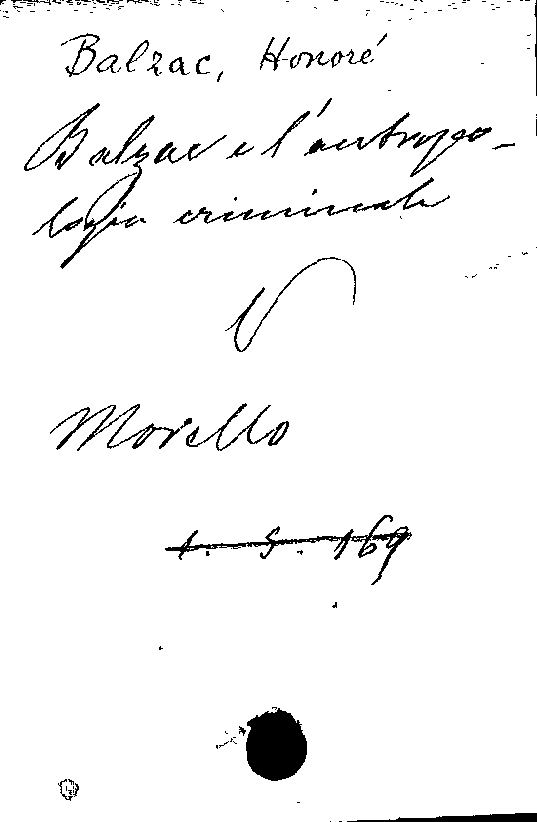 Balzac, Honoré
Balzac e l'antropo-
logia criminale
V
Morello
1. 5. 169